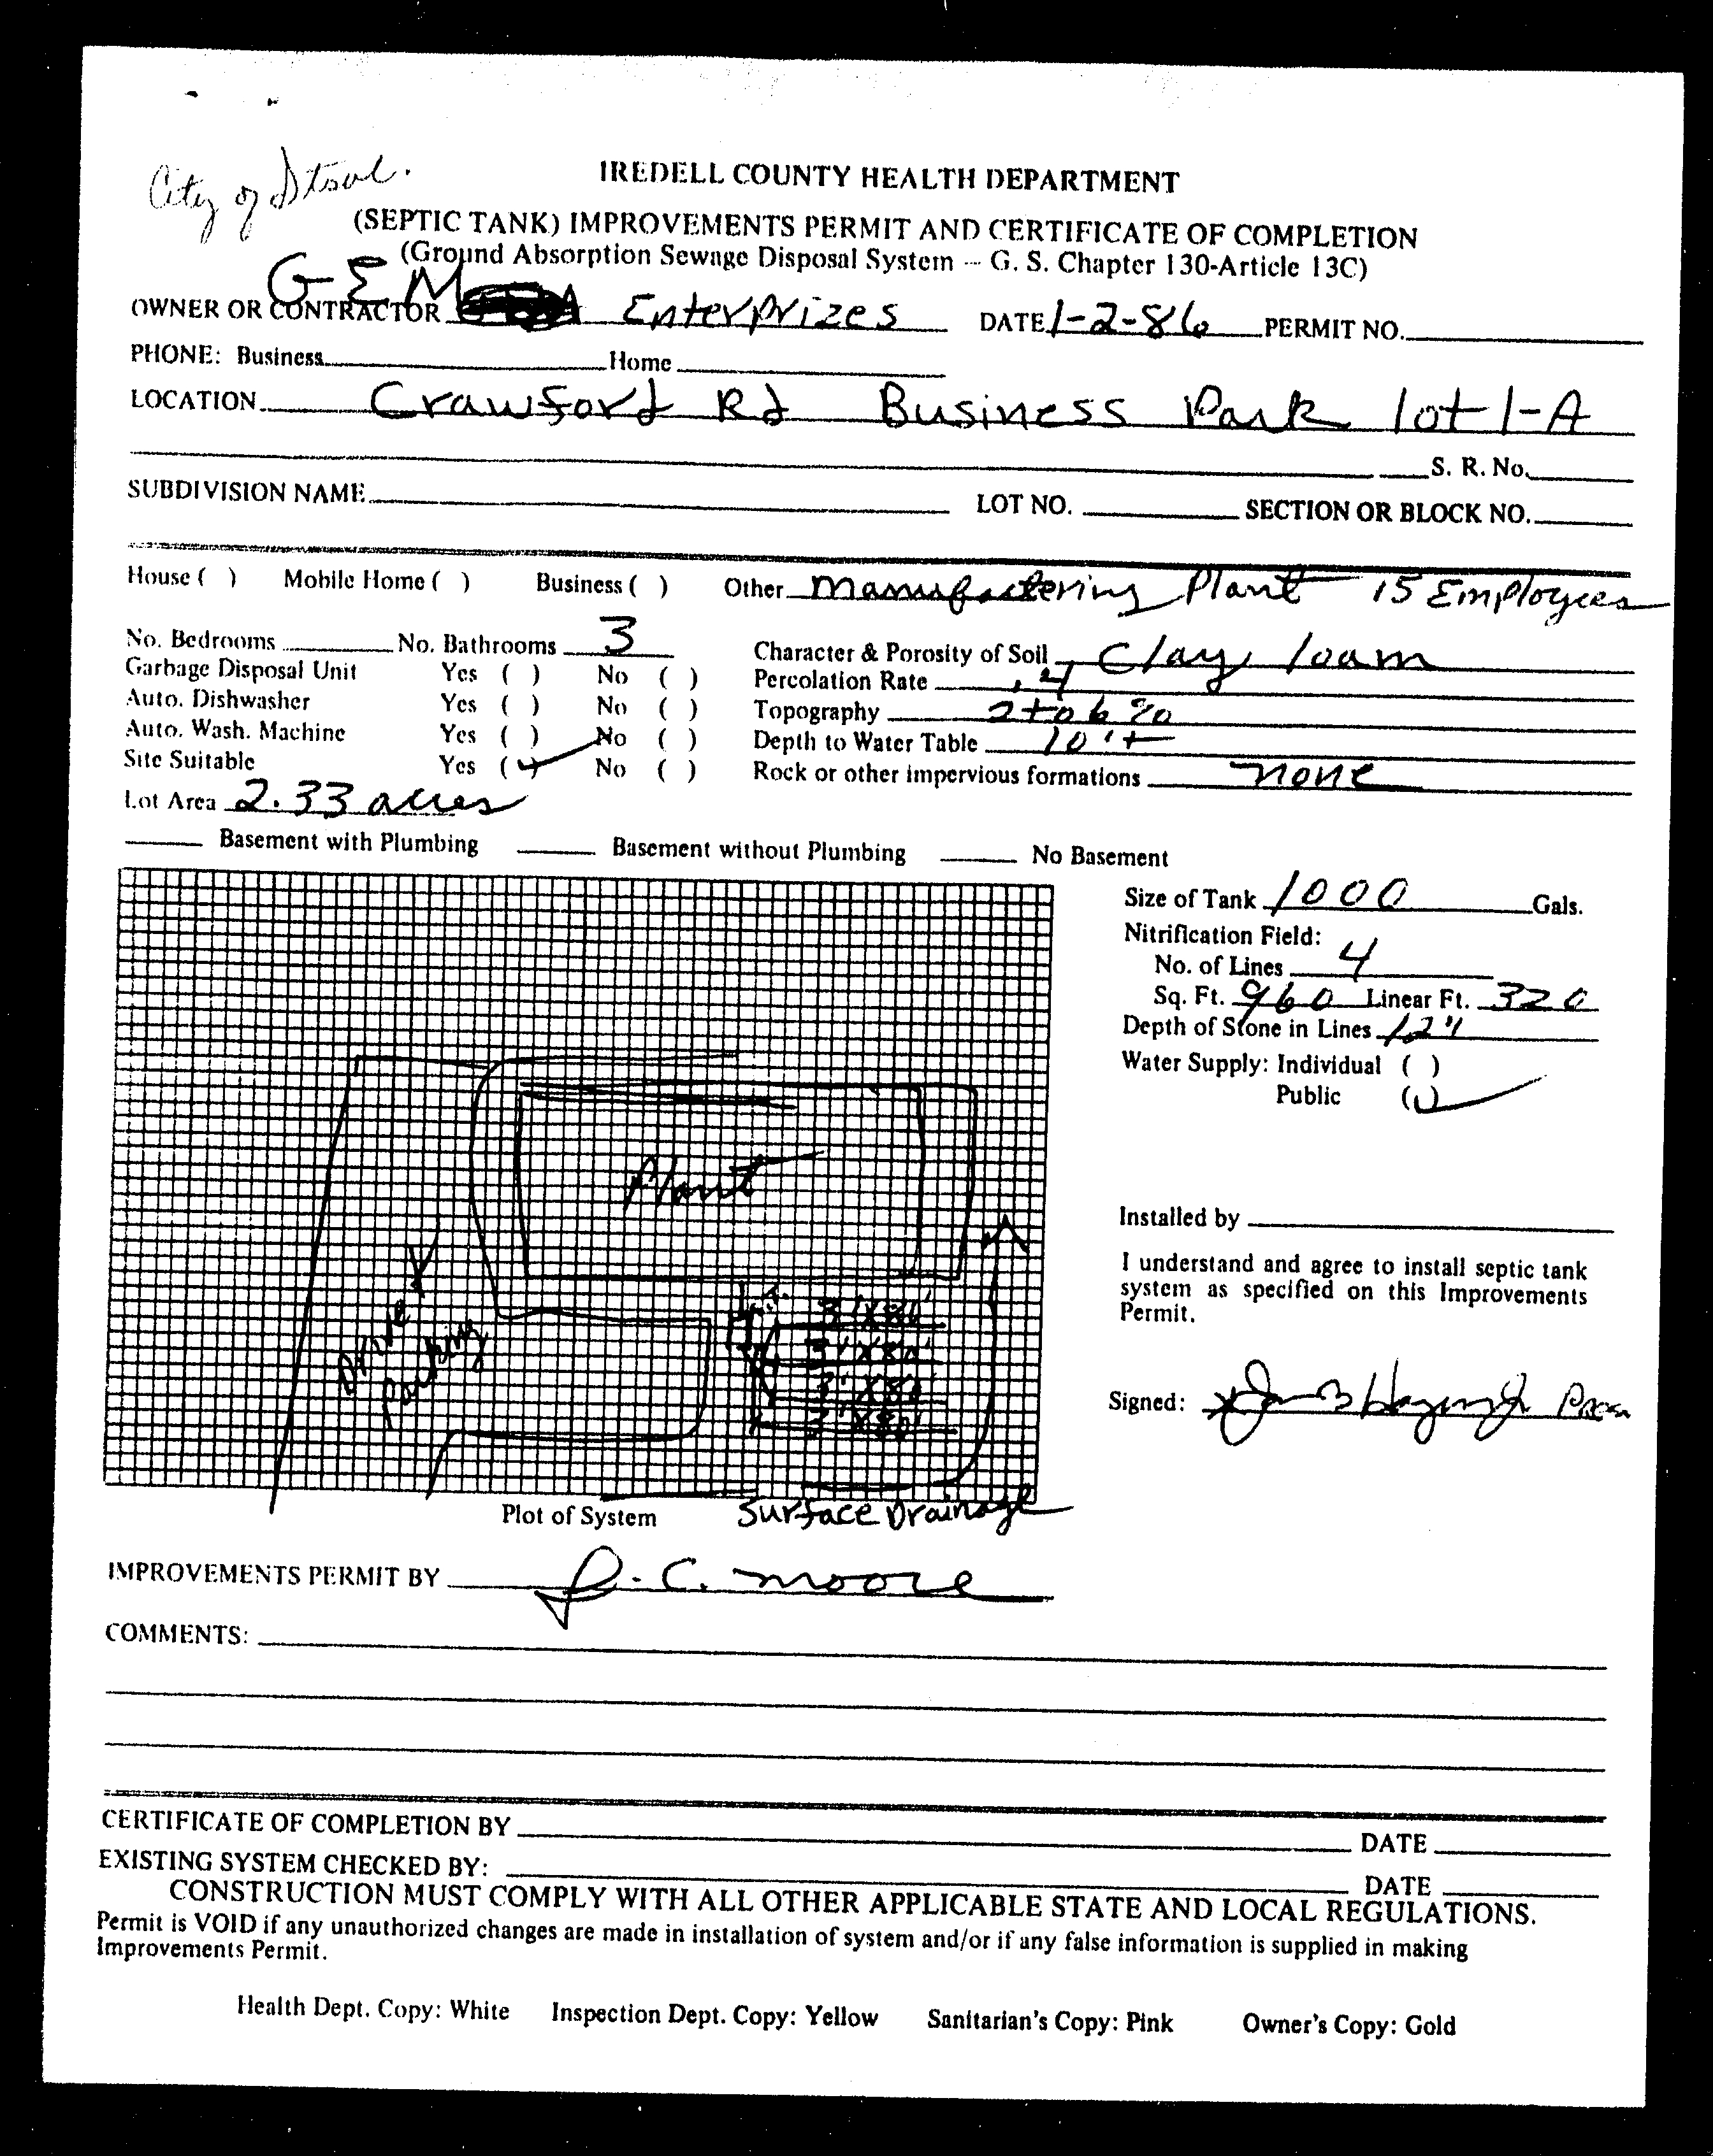 City of
IREDELL COUNTY HEALTH DEPARTMENT
(SEPTIC TANK) IMPROVEMENTS PERMIT AND CERTIFICATE OF COMPLETION
(Ground Absorption Sewage Disposal System -- G. S. Chapter 130-Article 13C)
OWNER OR CONTRACTOR GEM Enterprizes DATE 1-2-86 PERMIT NO.
PHONE: Business Home
LOCATION Crawford Rd Business Park lot 1-A
S. R. No.
SUBDIVISION NAME LOT NO. SECTION OR BLOCK NO.
House ( ) Mobile Home ( ) Business ( ) Other Manufactering Plant 15 Employees
No. Bedrooms No. Bathrooms 3 Character & Porosity of Soil Clay loam
Garbage Disposal Unit Yes ( ) No ( ) Percolation Rate .4
Auto. Dishwasher Yes ( ) No ( ) Topography 2 to 6 %
Auto. Wash. Machine Yes ( ) No ( ) Depth to Water Table 10'+
Site Suitable Yes (✓) No ( ) Rock or other impervious formations none
Lot Area 2.33 acres
Basement with Plumbing Basement without Plumbing No Basement
Size of Tank 1000 Gals.
Nitrification Field:
No. of Lines 4
Sq. Ft. 960 Linear Ft. 320
Depth of Stone in Lines 12"
Water Supply: Individual ( )
Public (✓)
Plant
Drive &
Parking
3'X80'
3'X80'
3'X80'
3'X80'
Installed by
I understand and agree to install septic tank
system as specified on this Improvements
Permit.
Signed:
Plot of System Surface Drainage
IMPROVEMENTS PERMIT BY J. C. Moore
COMMENTS:
CERTIFICATE OF COMPLETION BY DATE
EXISTING SYSTEM CHECKED BY: DATE
CONSTRUCTION MUST COMPLY WITH ALL OTHER APPLICABLE STATE AND LOCAL REGULATIONS.
Permit is VOID if any unauthorized changes are made in installation of system and/or if any false information is supplied in making
Improvements Permit.
Health Dept. Copy: White Inspection Dept. Copy: Yellow Sanitarian's Copy: Pink Owner's Copy: Gold